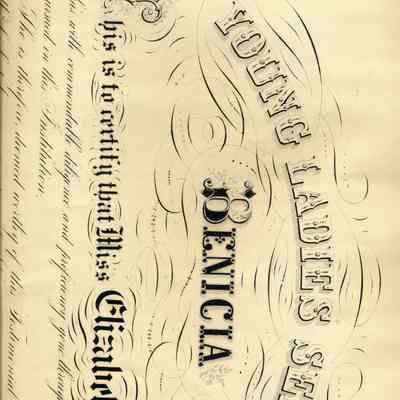 YOUNG LADIES SE
BENICIA
This is to certify that Miss Elizabe
with commendable diligence and proficiency gone through
in this Institution.
She is therefore deemed worthy of this Testimonial